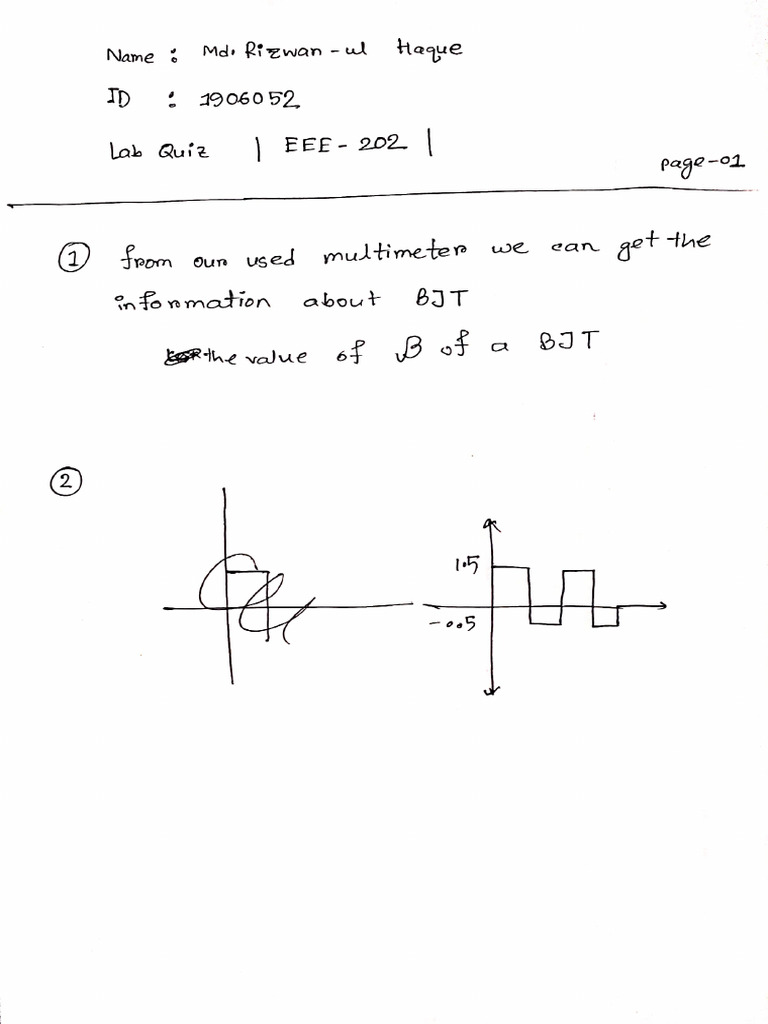 Name : Md. Rizwan-ul Haque
ID : 1906052
Lab Quiz | EEE-202 |
page-01
① from our used multimeter we can get the
information about BJT
the value of β of a BJT
②
1.5
-0.5